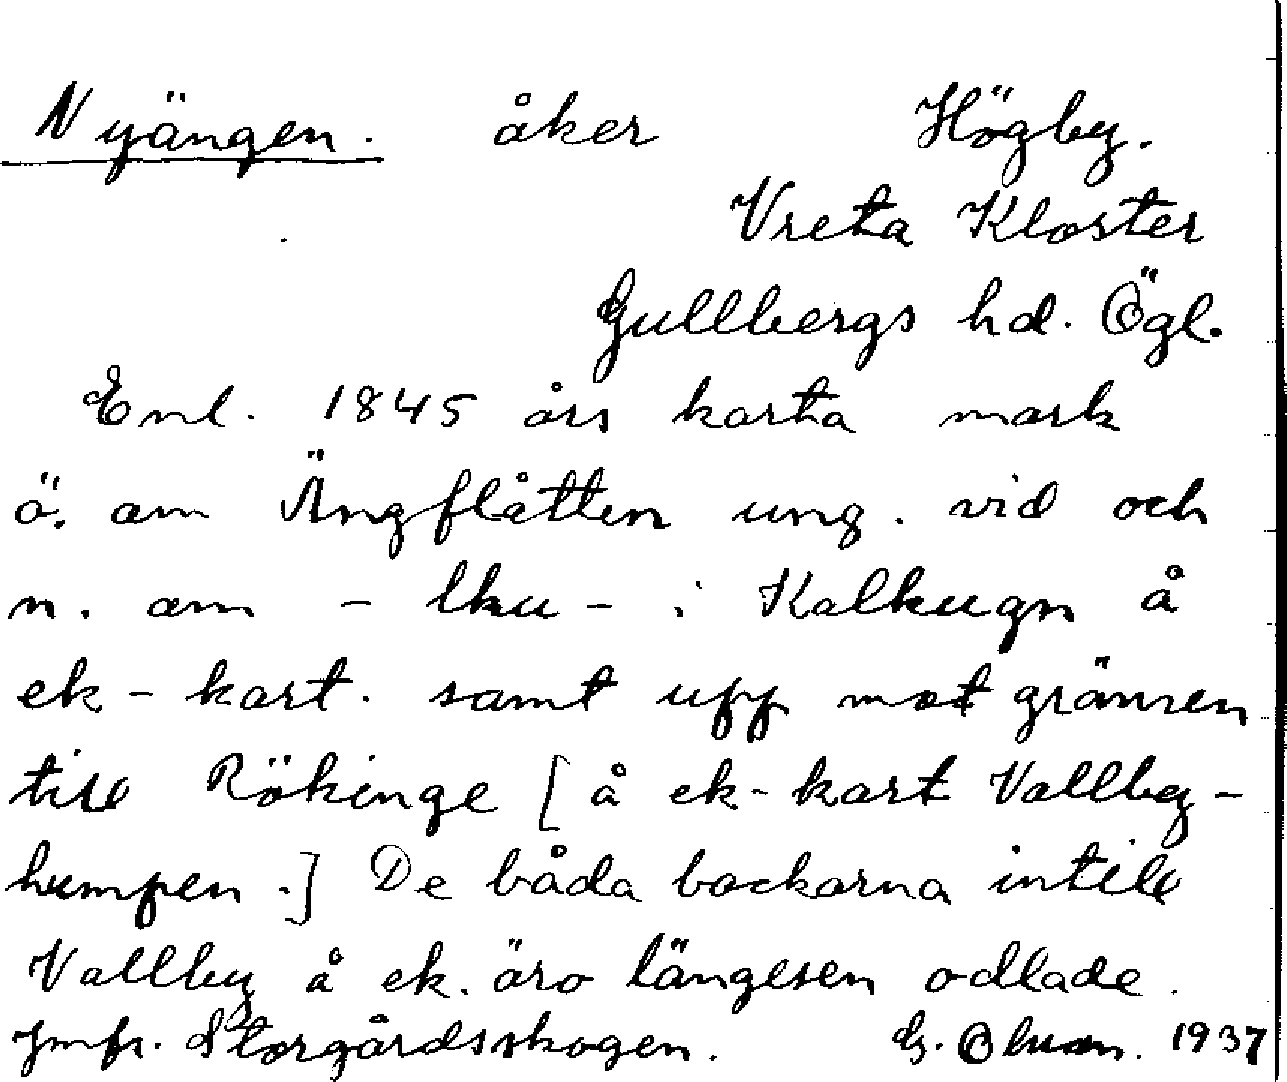 Nyängen. åker Högby.
Vreta Kloster
Gullbergs hd. Ögl.
Enl. 1845 års karta mark
ö. om Ängflåtten ung. vid och
n. om - lku - i Kalkugn å
ek-kart. samt upp mot gränsen
till Rökinge [å ek-kart Vallby-
humpen.] De båda backarna intill
Vallby å ek. äro längesen odlade.
Jmfr. Storgårdsskogen. G. Olsson. 1937